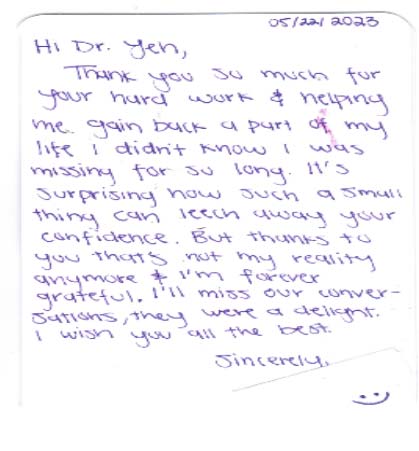 05/22/2023
Hi Dr. Yeh,
Thank you so much for
your hard work & helping
me gain back a part of my
life I didn't know I was
missing for so long. It's
surprising how such a small
thing can leech away your
confidence. But thanks to
you that's not my reality
anymore & I'm forever
grateful. I'll miss our conver-
sations, they were a delight.
I wish you all the best.
Sincerely,